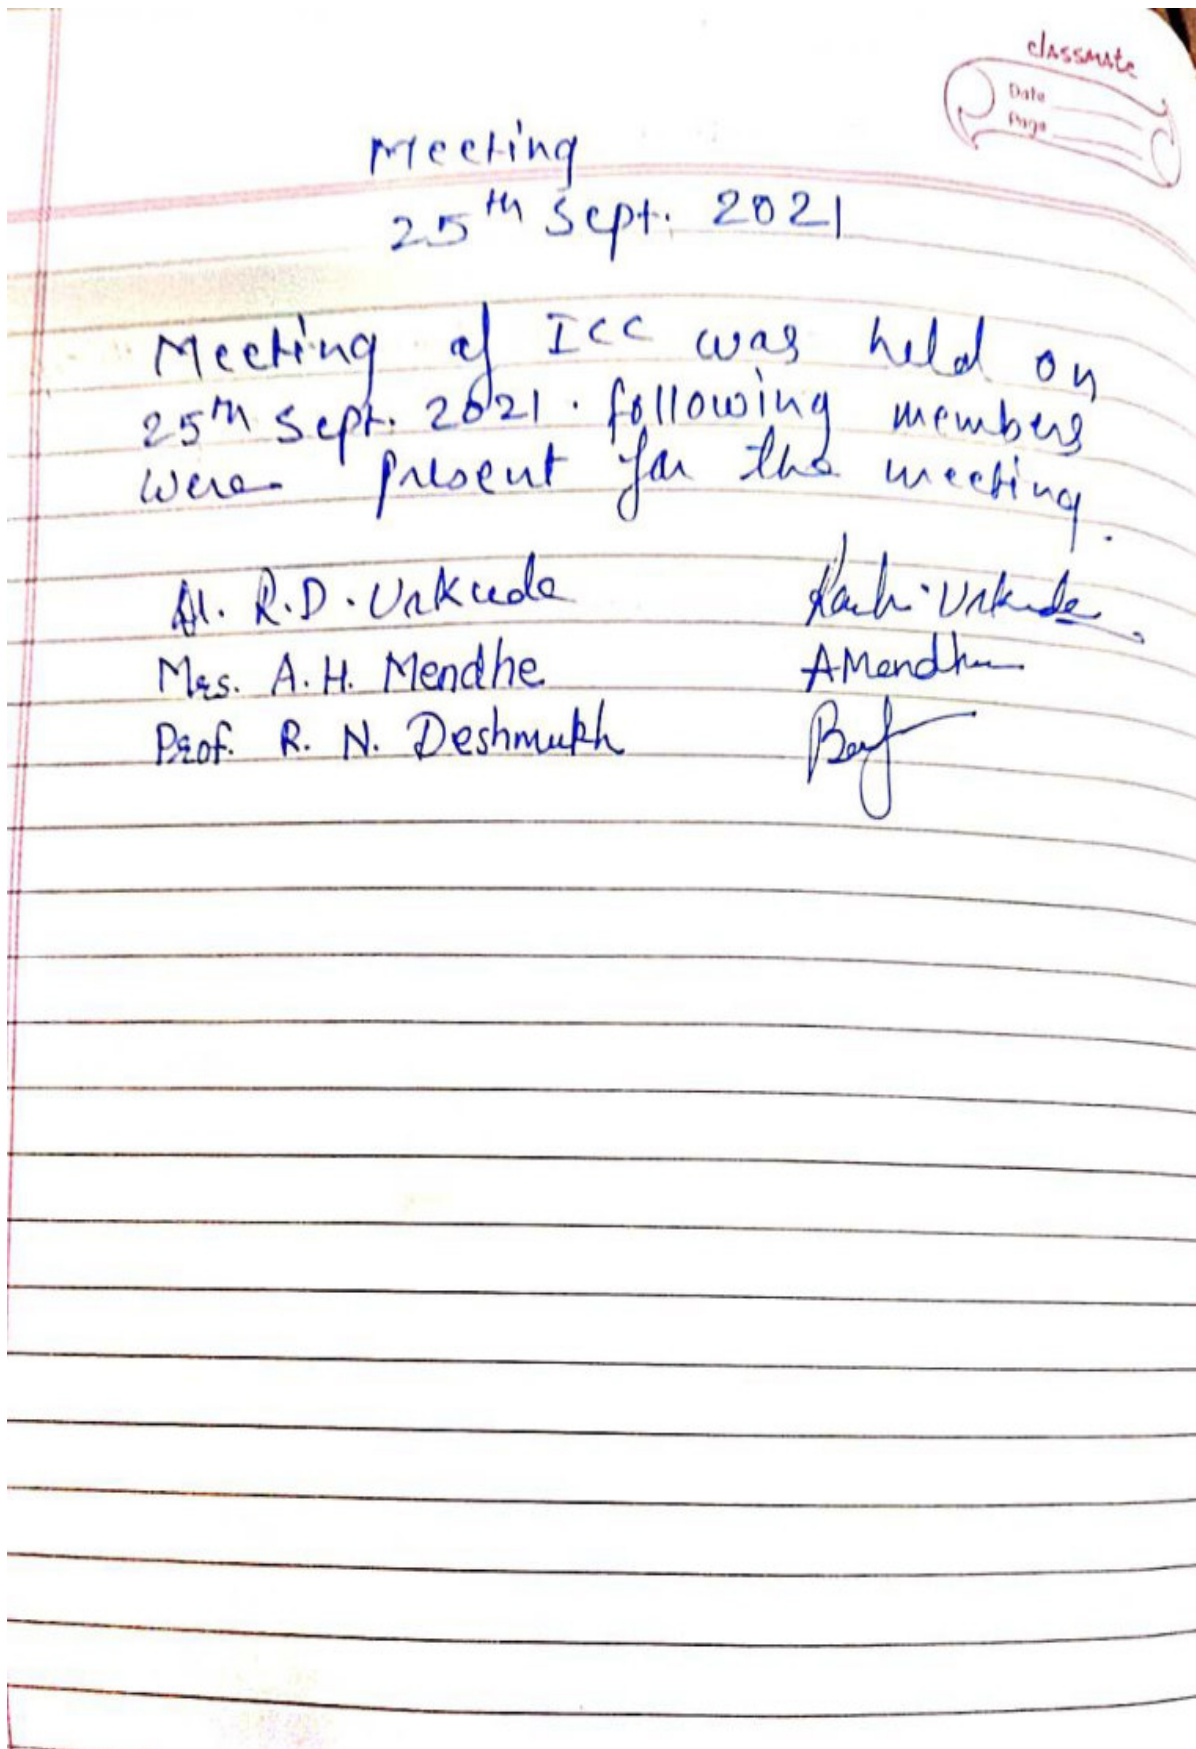 classmate
Date
Page
Meeting
25th Sept. 2021
Meeting of ICC was held on
25th Sept. 2021. following members
were present for the meeting.
R.D. Urkude Urkude
Mrs. A. H. Mendhe AMendhe
Prof. R. N. Deshmukh